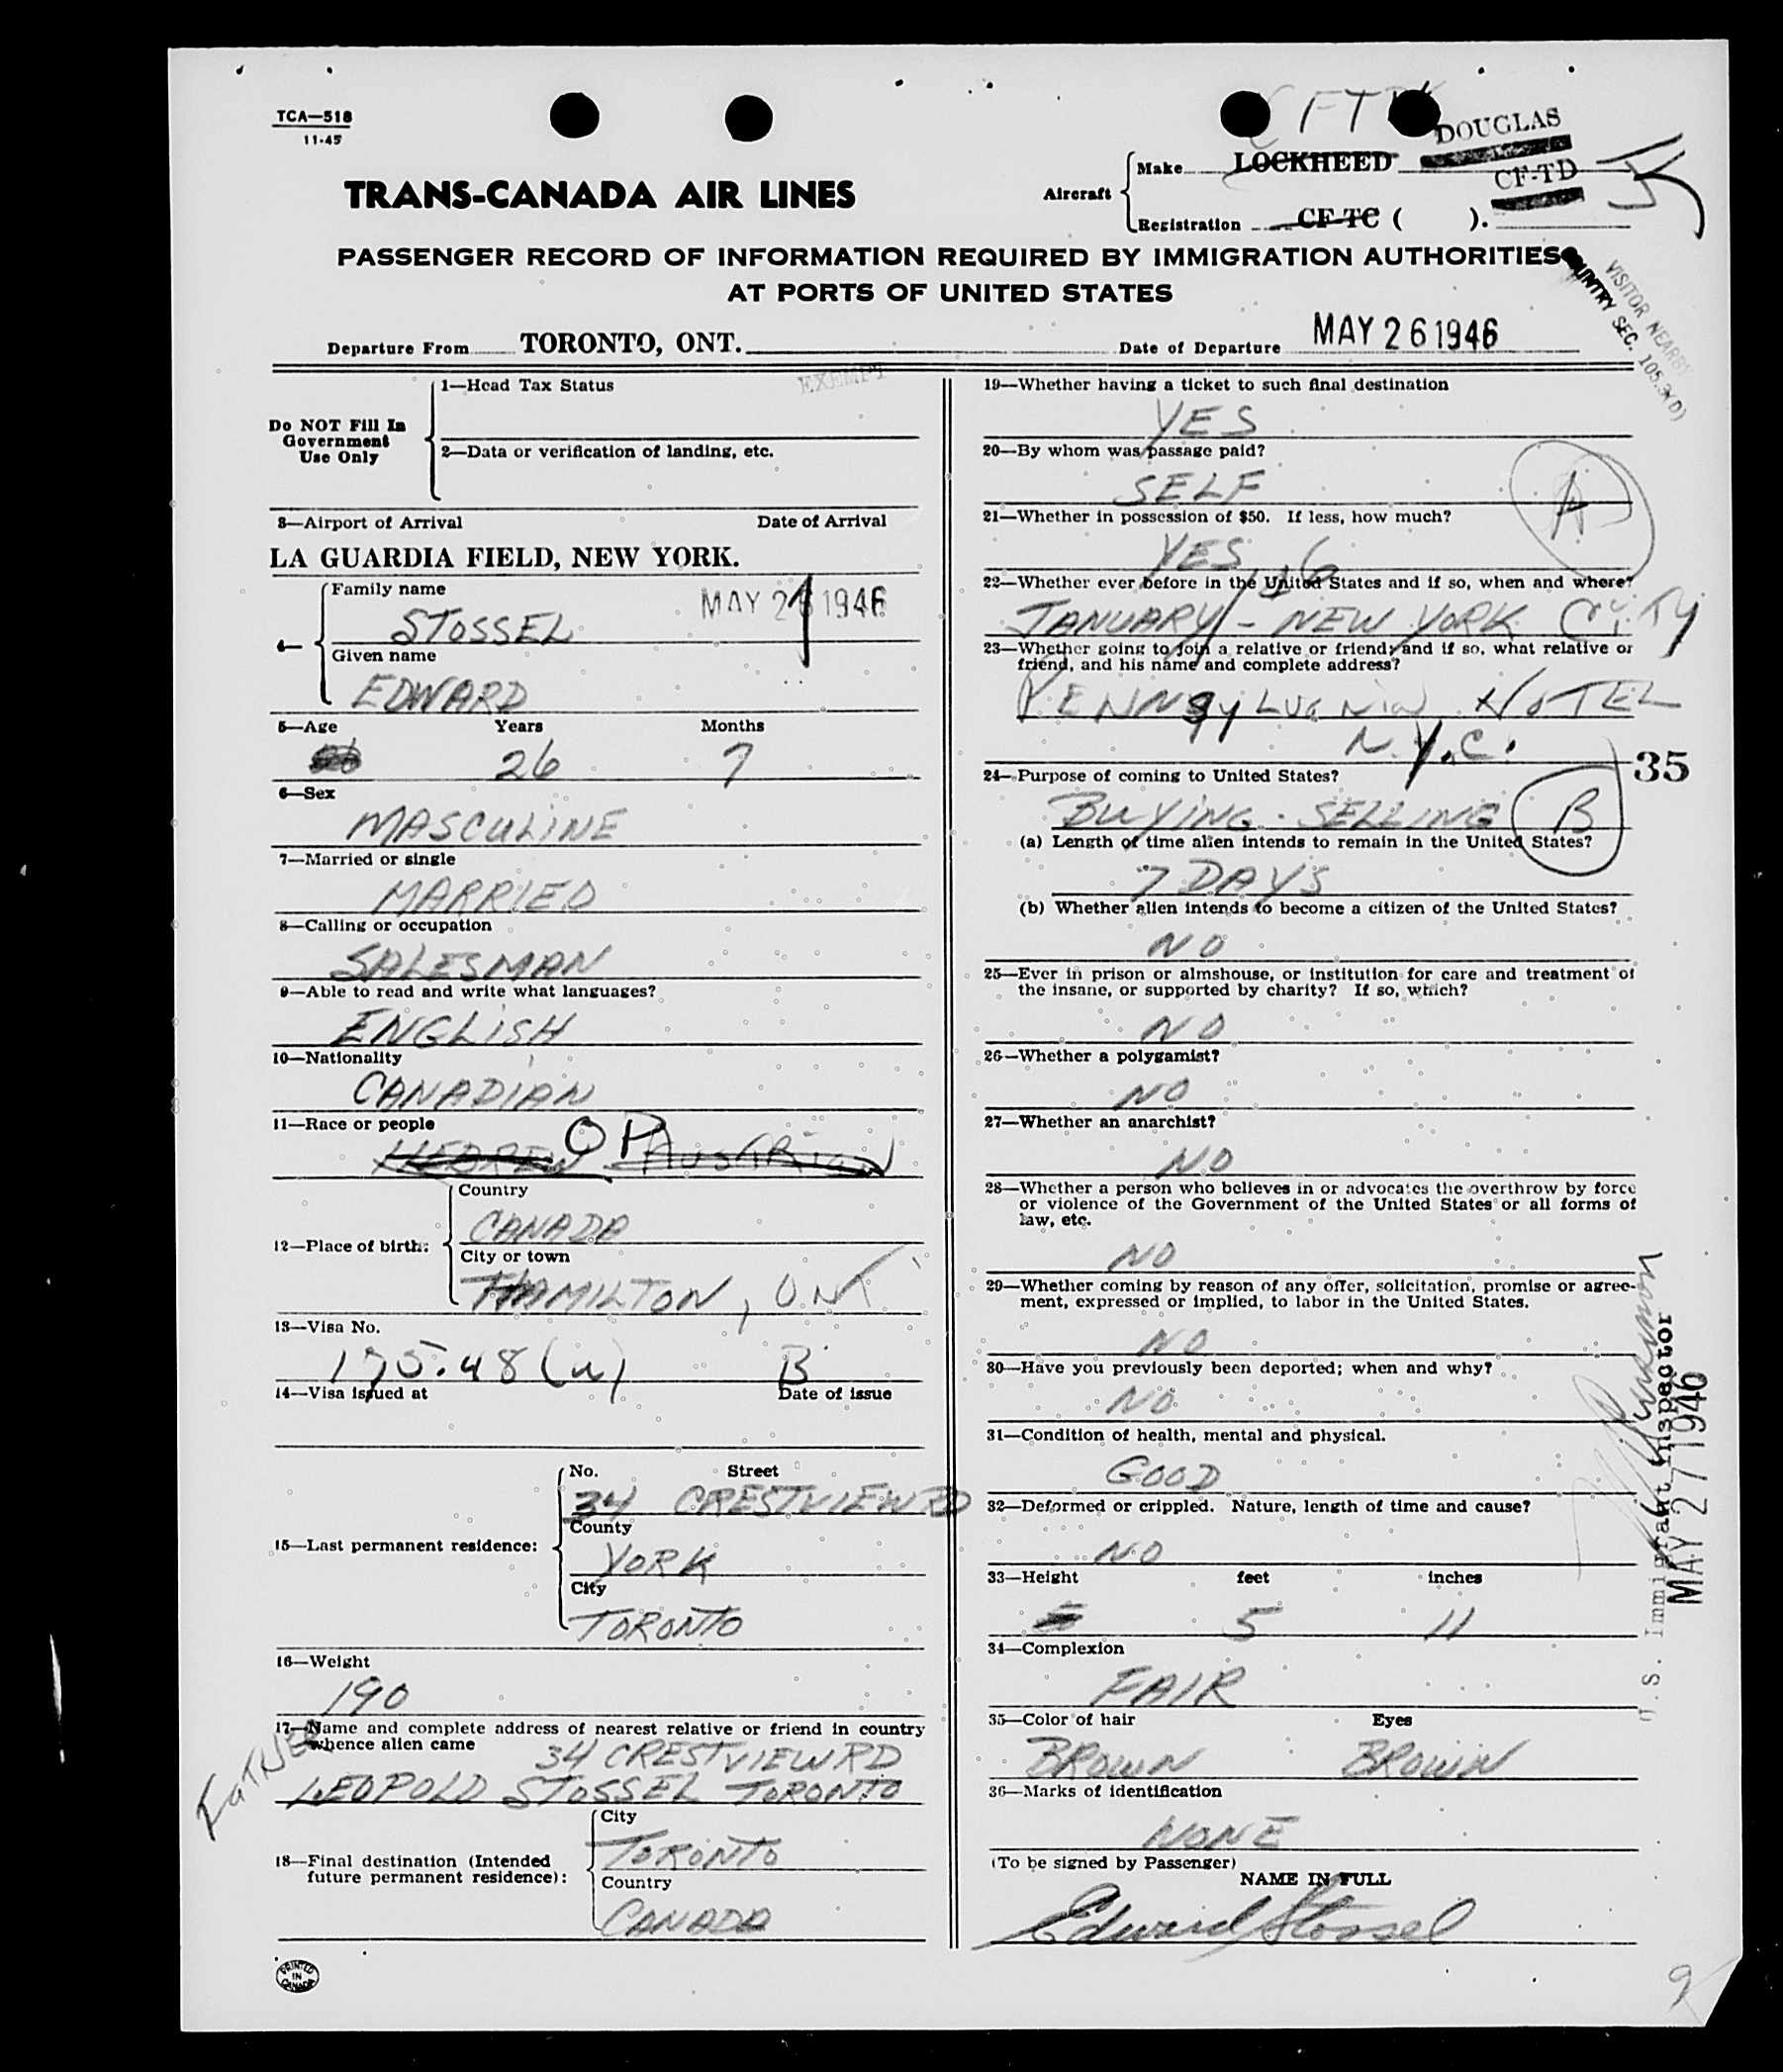 TCA—518
11-45
TRANS-CANADA AIR LINES
Aircraft
Make LOCKHEED DOUGLAS
Registration CF-TC ( ). CF-TD
PASSENGER RECORD OF INFORMATION REQUIRED BY IMMIGRATION AUTHORITIES
AT PORTS OF UNITED STATES
VISITOR NEARBY
COUNTRY SEC. 105.3(D)
Departure From TORONTO, ONT. Date of Departure MAY 26 1946
Do NOT Fill In
Government
Use Only
1—Head Tax Status EXEMPT
2—Data or verification of landing, etc.
3—Airport of Arrival Date of Arrival
LA GUARDIA FIELD, NEW YORK.
MAY 26 1946
4—
Family name
STOSSEL
Given name
EDWARD
5—Age Years Months
26 7
6—Sex
MASCULINE
7—Married or single
MARRIED
8—Calling or occupation
SALESMAN
9—Able to read and write what languages?
ENGLISH
10—Nationality
CANADIAN
11—Race or people
HEBREW OP AUSTRIAN
12—Place of birth:
Country
CANADA
City or town
HAMILTON, ONT
13—Visa No.
175.48(a) B
14—Visa issued at Date of issue
15—Last permanent residence:
No. Street
34 CRESTVIEW RD
County
YORK
City
TORONTO
16—Weight
190
17—Name and complete address of nearest relative or friend in country
whence alien came
34 CRESTVIEW RD
FATHER
LEOPOLD STOSSEL TORONTO
18—Final destination (Intended
future permanent residence):
City
TORONTO
Country
CANADA
PRINTED
IN
CANADA
19—Whether having a ticket to such final destination
YES
20—By whom was passage paid?
SELF
21—Whether in possession of $50. If less, how much?
YES
A
22—Whether ever before in the United States and if so, when and where?
JANUARY - NEW YORK CITY
23—Whether going to join a relative or friend; and if so, what relative or
friend, and his name and complete address?
PENNSYLVANIA HOTEL
N.Y.C.
35
24—Purpose of coming to United States?
BUYING - SELLING B
(a) Length of time alien intends to remain in the United States?
7 DAYS
(b) Whether alien intends to become a citizen of the United States?
NO
25—Ever in prison or almshouse, or institution for care and treatment of
the insane, or supported by charity? If so, which?
NO
26—Whether a polygamist?
NO
27—Whether an anarchist?
NO
28—Whether a person who believes in or advocates the overthrow by force
or violence of the Government of the United States or all forms of
law, etc.
NO
29—Whether coming by reason of any offer, solicitation, promise or agree-
ment, expressed or implied, to labor in the United States.
NO
30—Have you previously been deported; when and why?
NO
31—Condition of health, mental and physical.
GOOD
32—Deformed or crippled. Nature, length of time and cause?
NO
33—Height feet inches
5 11
34—Complexion
FAIR
35—Color of hair Eyes
BROWN BROWN
36—Marks of identification
NONE
(To be signed by Passenger)
NAME IN FULL
Edward Stossel
U.S. Immigrant Inspector
MAY 27 1946
9